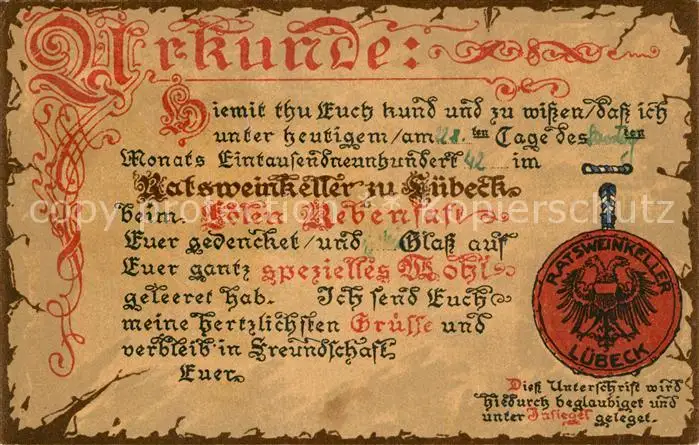 Urkunde:
Hiemit thu Euch kund und zu wißen/daß ich
unter heutigem/am 28.ten Tage des ten
Monats Eintausendneunhundert 42 im
Ratsweinkeller zu Lübeck
beim Edlen Rebensaft
Euer gedencket/und Glaß auf
Euer gantz spezielles Wohl
geleeret hab. Ich send Euch
meine hertzlichsten Grüsse und
verbleib in Freundschaft
Euer.
RATSWEINKELLER
LÜBECK
Dieß Unterschrift wird
hiedurch beglaubiget und
unter Insiegel geleget.
copyright protection * Kopierschutz